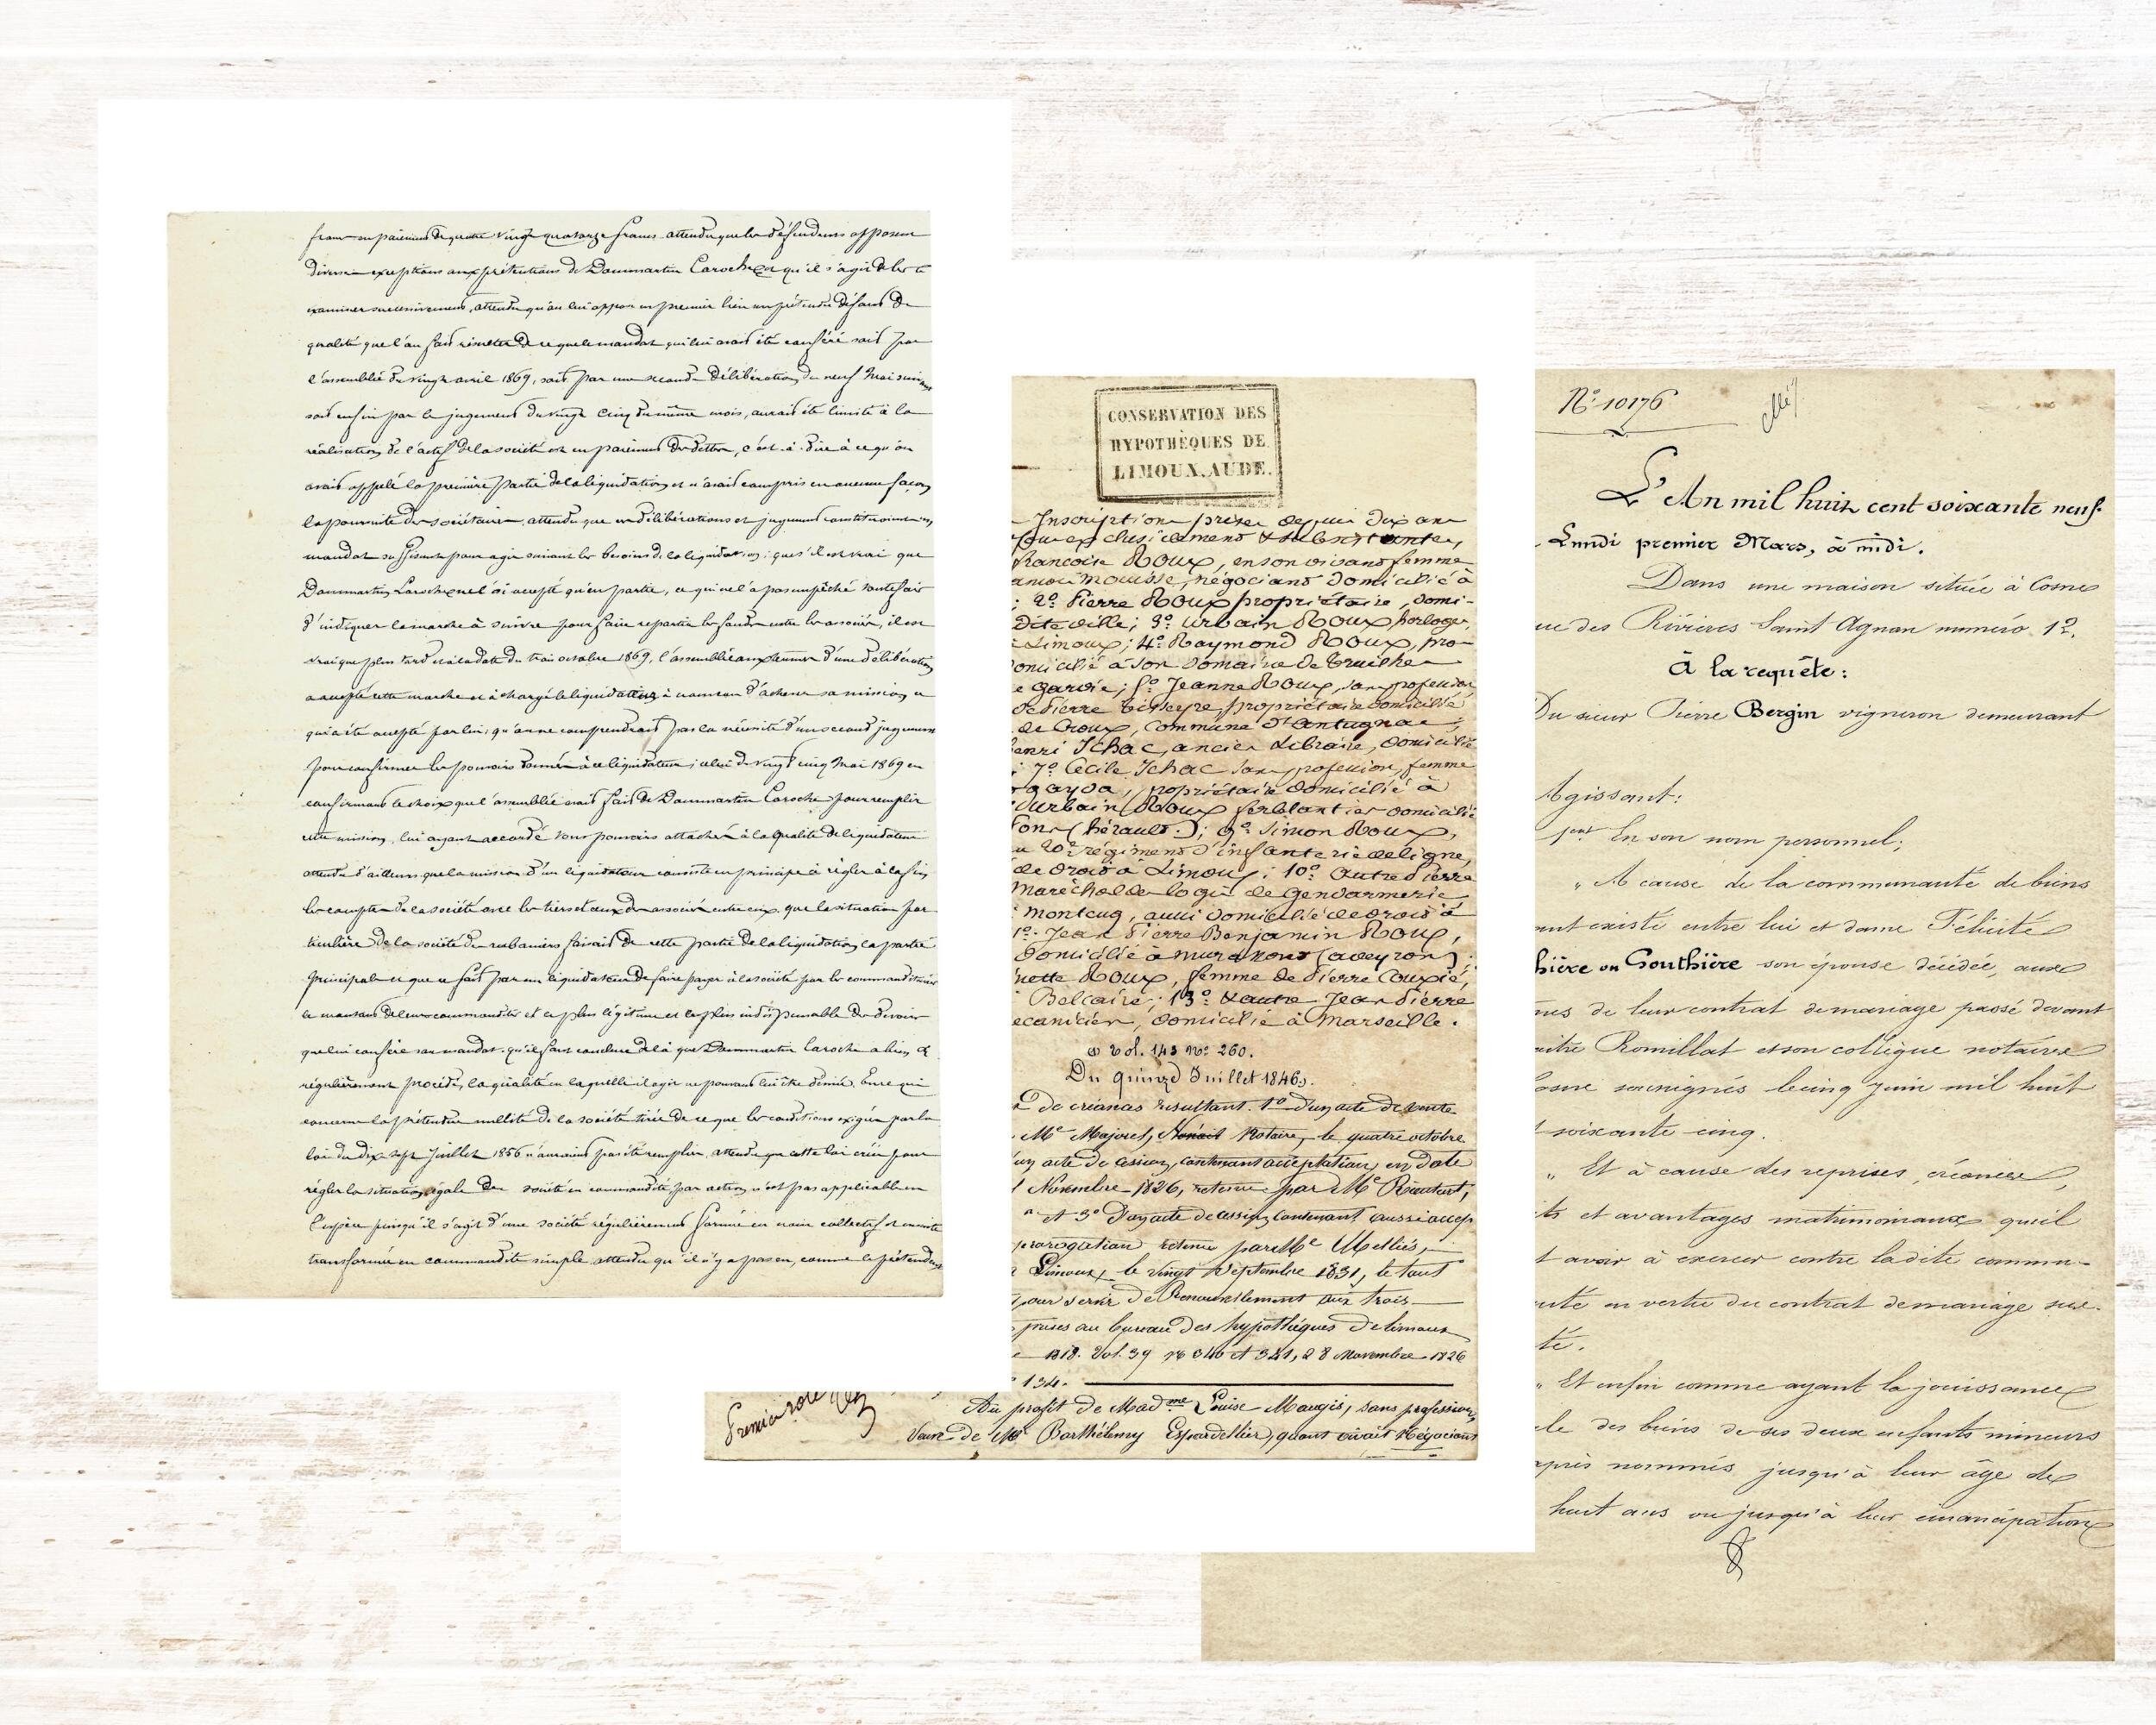 franc en paiement de quatre vingt quatorze francs attendu que les défendeurs opposent
diverses exceptions aux prétentions de Dammartin Laroche et qu'il s'agit de les
examiner successivement, attendu qu'on lui oppose en premier lieu un prétendu défaut de
qualité que l'on fait résulter de ce que le mandat qui lui avait été conféré soit par
l'assemblée du vingt avril 1869, soit par une seconde délibération du neuf Mai suivant
soit enfin par le jugement du vingt cinq du même mois, aurait été limité à la
réalisation de l'actif de la société et en paiement des dettes, c'est-à-dire à ce qu'on
avait appelé la première partie de la liquidation et n'avait compris en aucune façon
la poursuite des sociétaires, attendu que ces délibérations et jugement constituaient un
mandat suffisant pour agir suivant les besoins de la liquidation; que s'il est vrai que
Dammartin Laroche ne l'ai accepté qu'en partie, ce qui ne l'a pas empêché toutefois
d'indiquer la marche à suivre pour faire repartir les fonds entre les associés, il est
vrai que plus tard et à la date du trois octobre 1869, l'assemblée aux termes d'une délibération
a accepté cette marche et a chargé le liquidateur à nouveau d'achever sa mission ce
qui a été accepté par lui; qu'on ne comprendrait pas la nécessité d'un second jugement
pour confirmer les pouvoirs donnés à ce liquidateur; celui du vingt cinq Mai 1869 en
confirmant le choix que l'assemblée avait fait de Dammartin Laroche pour remplir
cette mission, lui ayant accordé tous pouvoirs attachés à la qualité de liquidateur
attendu d'ailleurs que la mission d'un liquidateur consiste en principe à régler à la fois
les comptes de la société avec les tiers et ceux des associés entre eux. que la situation par
ticulière de la société des rubaniers faisait de cette partie de la liquidation la partie
principale et que ce fait par un liquidateur de faire payer à la société par les commanditaires
le montant de leurs commandites est le plus légitime et le plus indispensable des devoirs
que lui confère son mandat. qu'il faut conclure de là que Dammartin Laroche a bien et
régulièrement procédé, la qualité en laquelle il agit ne pouvant lui être déniée. En ce qui
concerne la prétendue nullité de la société tirée de ce que les conditions exigées par la
loi du dix sept Juillet 1856 n'auraient pas été remplies, attendu que cette loi créée pour
régler la situation légale des société en commandite par actions n'est pas applicable en
l'espèce puisqu'il s'agit d'une société régulièrement formée en nom collectif et ensuite
transformée en commandite simple, attendu qu'il n'y a pas eu, comme le prétendent
CONSERVATION DES
HYPOTHÈQUES DE
LIMOUX, AUDE.
Inscription prise depuis dix ans
exclusivement
françoise Roux, en son vivant femme
Mouisse, négociant domicilié à
; 2º Pierre Roux propriétaire, domi-
dite ville; 3º Urbain Roux horloger,
Limoux; 4º Raymond Roux, pro-
omicilié à son domaine de
; 5º Jeanne Roux, sans profession
de Pierre Tisseyre, propriétaire domicilié
de Croux, Commune d'Antugnac,
enri Ichac, ancien Libraire, domicilié
; 7º Cécile Ichac sans profession, femme
gayda, propriétaire domicilié à
Urbain Roux ferblantier domicilié
(hérault.); 9º Simon Roux,
u 20e régiment d'infanterie de ligne,
de droit à Limoux; 10º autre Pierre
Maréchal de logis de Gendarmerie
montcuq, aussi domicilié de droit à
1º Jean Pierre Benjamin Roux,
domicilié à (aveyron)
nette Roux, femme de Pierre
Belcaire; 13º autre Jean Pierre
ecanicien, domicilié à Marseille.
vol. 143 nº 260.
Du quinze Juillet 1846.
de créances résultant. 1º d'un acte de vente
Me Majorel, Notaire, le quatre octobre
un acte de cession, contenant acceptation, en date
Novembre 1826, retenu par Me
et 3º d'un acte de cession contenant aussi accep
prorogation, retenu par Me Melliès,
Limoux, le vingt Septembre 1831, le tout
pour servir de Renouvellement aux trois
prises au bureau des hypothèques de Limoux
1818. Vol. 39 nº 340 et 341, 28 Novembre 1826
134.
Premier role
Au profit de Madme Louise Maugis, sans profession,
Veuve de Mr Barthélemy Espardellier, quant vivait Négociant
Nº 10176
L'An mil huit cent soixante neuf.
Lundi premier Mars, à midi.
Dans une maison située à Cosne
ue des Rivières Saint Agnan numéro 12.
À la requête:
Du sieur Pierre Bergin vigneron demeurant
Agissant:
1ent En son nom personnel;
" A cause de la communauté de biens
ant existé entre lui et dame Félicité
hière ou Gouthière son épouse décédée, aux
mes de leur contrat de mariage passé devant
aitre Romillat et son collègue notaires
Cosne soussignés le cinq Juin mil huit
t soixante cinq.
" Et à cause des reprises, créances,
ts et avantages matrimoniaux qu'il
t avoir à exercer contre ladite commu-
uté en vertu du contrat de mariage sus-
té.
" Et enfin comme ayant la jouissance
ale des biens de ses deux enfants mineurs
après nommés jusqu'à leur âge de
huit ans ou jusqu'à leur émancipation